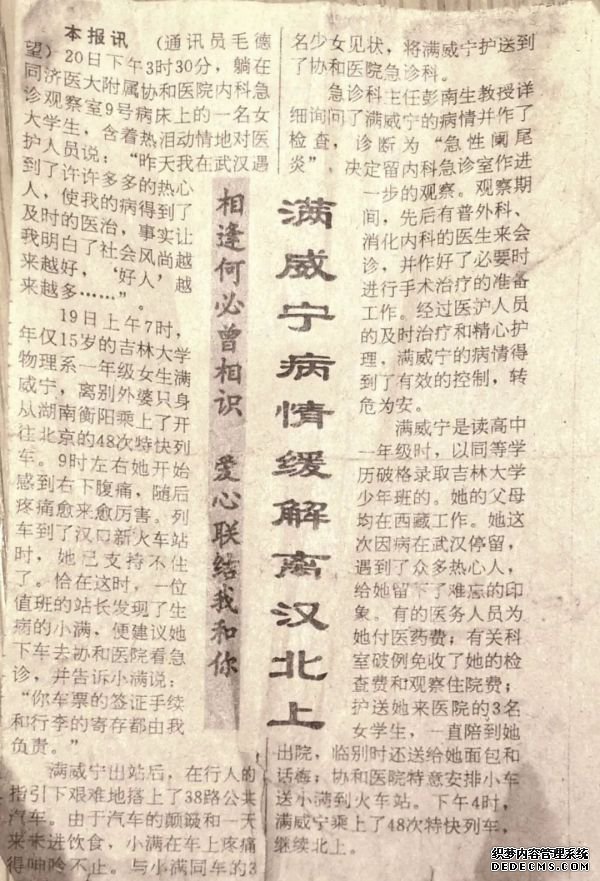 本报讯 （通讯员毛德
望）20日下午3时30分，躺在
同济医大附属协和医院内科急
诊观察室9号病床上的一名女
大学生，含着热泪动情地对医
护人员说：“昨天我在武汉遇
到了许许多多的热心
人，使我的病得到了
及时的医治，事实让
我明白了社会风尚越
来越好，‘好人’越
来越多……”。
19日上午7时，
年仅15岁的吉林大学
物理系一年级女生满
威宁，离别外婆只身
从湖南衡阳乘上了开
往北京的48次特快列
车。9时左右她开始
感到右下腹痛，随后
疼痛愈来愈厉害。列
车到了汉口新火车站
时，她已支持不住
了。恰在这时，一位
值班的站长发现了生
病的小满，便建议她
下车去协和医院看急
诊，并告诉小满说：
“你车票的签证手续
和行李的寄存都由我
负责。”
满威宁出站后，在行人的
指引下艰难地搭上了38路公共
汽车。由于汽车的颠簸和一天
来未进饮食，小满在车上疼痛
得呻吟不止。与小满同车的3
相逢何必曾相识 爱心联结我和你
满威宁病情缓解离汉北上
名少女见状，将满威宁护送到
了协和医院急诊科。
急诊科主任彭南生教授详
细询问了满威宁的病情并作了
检查，诊断为“急性阑尾
炎”，决定留内科急诊室作进
一步的观察。观察期
间，先后有普外科、
消化内科的医生来会
诊，并作好了必要时
进行手术治疗的准备
工作。经过医护人员
的及时治疗和精心护
理，满威宁的病情得
到了有效的控制，转
危为安。
满威宁是读高中
一年级时，以同等学
历破格录取吉林大学
少年班的。她的父母
均在西藏工作。她这
次因病在武汉停留，
遇到了众多热心人，
给她留下了难忘的印
象。有的医务人员为
她付医药费；有关科
室破例免收了她的检
查费和观察住院费；
护送她来医院的3名
女学生，一直陪到她
出院，临别时还送给她面包和
话梅；协和医院特意安排小车
送小满到火车站。下午4时，
满威宁乘上了48次特快列车，
继续北上。
织梦内容管理系统
DEDECMS.COM